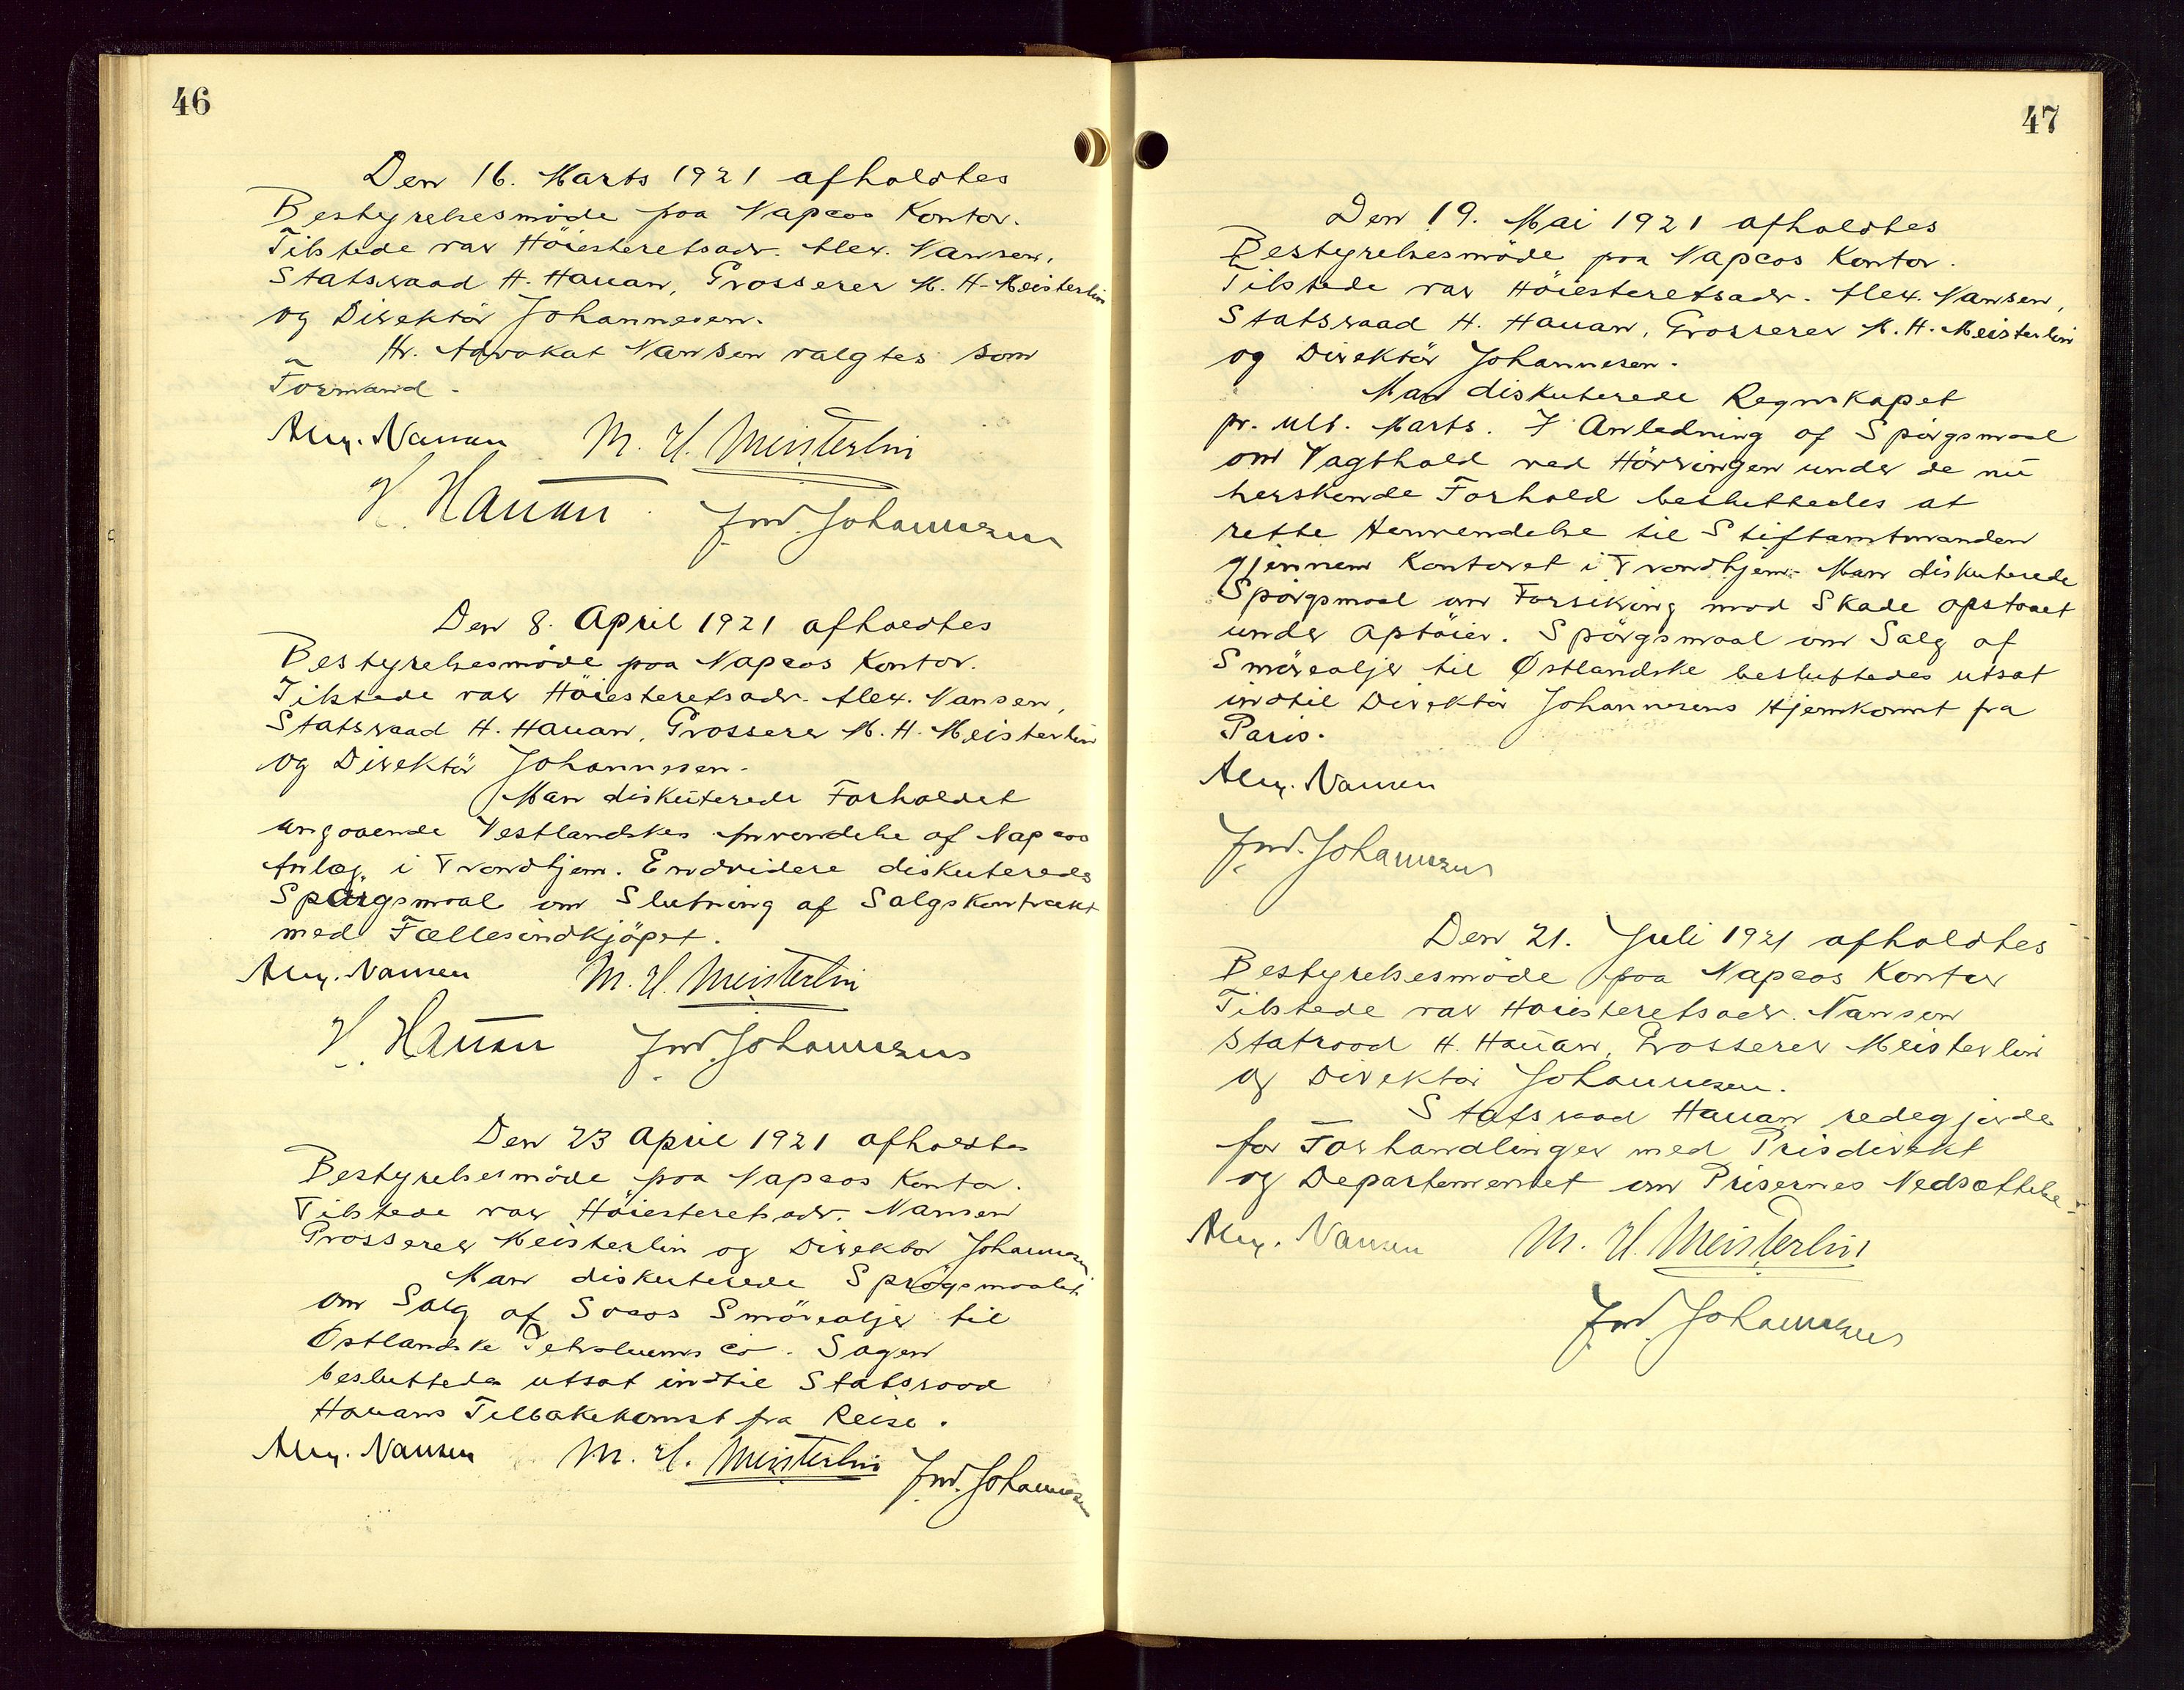 46
Den 16. Marts 1921 afholdtes
Bestyrelsesmöde paa Napcos Kontor.
Tilstede var Höiesteretsadv. Alex. Nansen,
Statsraad H. Hauan, Grosserer M. H. Meisterlin
og Direktör Johannesen.
Hr. Advokat Nansen valgtes som
Formand.
Alex. Nansen M. H. Meisterlin
H. Hauan Fred. Johannesen
Den 8. April 1921 afholdtes
Bestyrelsesmöde paa Napcos Kontor.
Tilstede var Höiesteretsadv. Alex. Nansen,
Statsraad H. Hauan, Grosserer M. H. Meisterlin
og Direktör Johannesen.
Man diskuterede Forholdet
angaaende Vestlandskes Anvendelse af Napcos
Anlæg i Trondhjem. Endvidere diskuteredes
Spörgsmaal om Slutning af Salgskontrakt
med Fællesindkjöpet.
Alex. Nansen M. H. Meisterlin
H. Hauan Fred. Johannesen
Den 23 April 1921 afholdtes
Bestyrelsesmöde paa Napcos Kontor.
Tilstede var Höiesteretsadv. Nansen
Grosserer Meisterlin og Direktör Johannesen
Man diskuterede Sprögsmaalet
om Salg af Socos Smöreoljer til
Østlandske Petroleums Co. Sagen
besluttedes utsat indtil Statsraad
Hauans Tilbakekomst fra Reise.
Alex. Nansen M. H. Meisterlin Fred. Johannesen
47
Den 19. Mai 1921 afholdtes
Bestyrelsesmöde paa Napcos Kontor.
Tilstede var Höiesteretsadv. Alex. Nansen,
Statsraad H. Hauan, Grosserer M. H. Meisterlin
og Direktör Johannesen.
Man diskuterede Regnskapet
pr. ult. Marts. I Anledning af Spörgsmaal
om Vagthold ved Hövringen under de nu
herskende Forhold besluttedes at
rette Henvendelse til Stiftamtmanden
gjennem Kontoret i Trondhjem. Man diskuterede
Spörgsmaal om Forsikring mod Skade opstaaet
under Optöier. Spörgsmaal om Salg af
Smöreoljer til Østlandske besluttedes utsat
indtil Direktör Johannesens Hjemkomst fra
Paris.
Alex. Nansen
Fred. Johannesen
Den 21. Juli 1921 afholdtes
Bestyrelsesmöde paa Napcos Kontor
Tilstede var Höiesteretsadv. Nansen
Statraad H. Hauan, Grosserer Meisterlin
og Direktör Johannesen.
Statsraad Hauan redegjorde
for Forhandlinger med Prisdirekt
og Departementet om Prisernes Nedsættelse.
Alex. Nansen M. H. Meisterlin
Fred. Johannesen